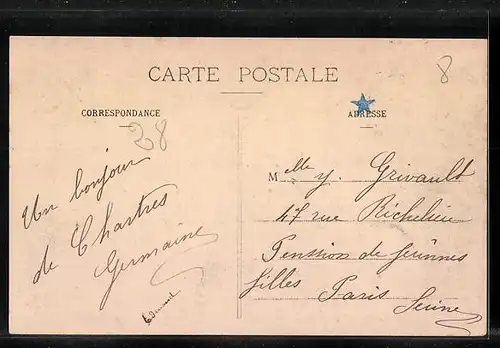 CARTE POSTALE
8
CORRESPONDANCE
28
Un bonjour
de Chartres
Germaine
ADRESSE
Melle Y. Grivault
47 rue Richelieu
Pension de jeunnes
filles Paris
Seine